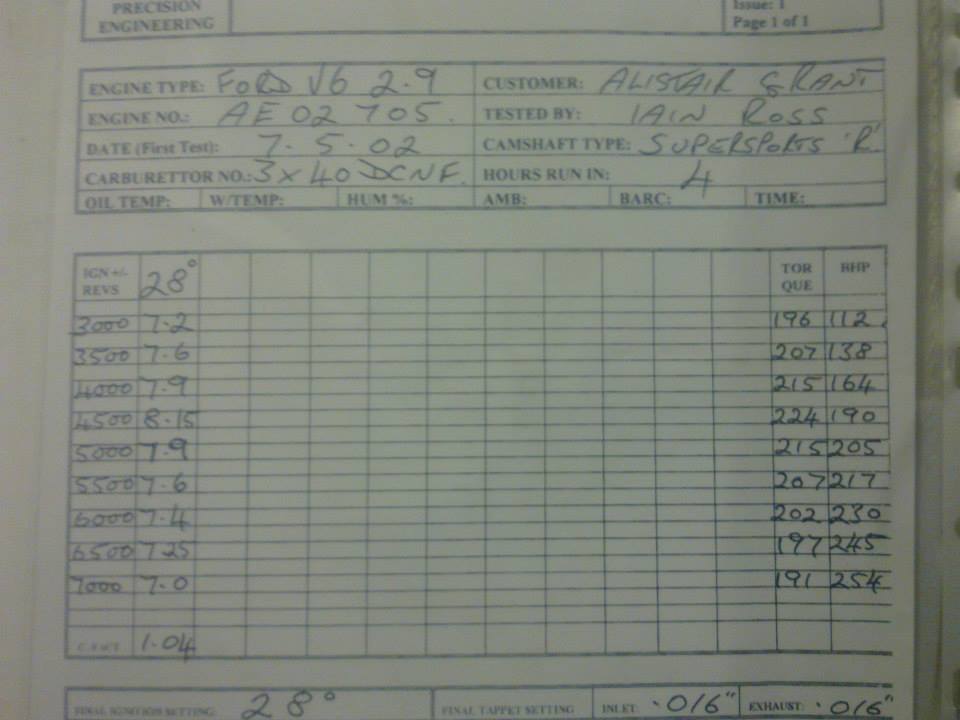 PRECISION
ENGINEERING
Issue: 1
Page 1 of 1
ENGINE TYPE: FORD V6 2.9 CUSTOMER: ALISTAIR GRANT
ENGINE NO.: AE 02 705. TESTED BY: IAIN ROSS
DATE (First Test): 7.5.02 CAMSHAFT TYPE: SUPERSPORTS 'R'
CARBURETTOR NO.: 3 x 40 DCNF. HOURS RUN IN: 4
OIL TEMP: W/TEMP: HUM %: AMB: BARC: TIME:
IGN +/- REVS 28° TOR QUE BHP
3000 7.2 196 112
3500 7.6 207 138
4000 7.9 215 164
4500 8.15 224 190
5000 7.9 215 205
5500 7.6 207 217
6000 7.4 202 230
6500 7.25 197 245
7000 7.0 191 254
1.04
FINAL IGNITION SETTING: 28° FINAL TAPPET SETTING INLET: .016" EXHAUST: .016"